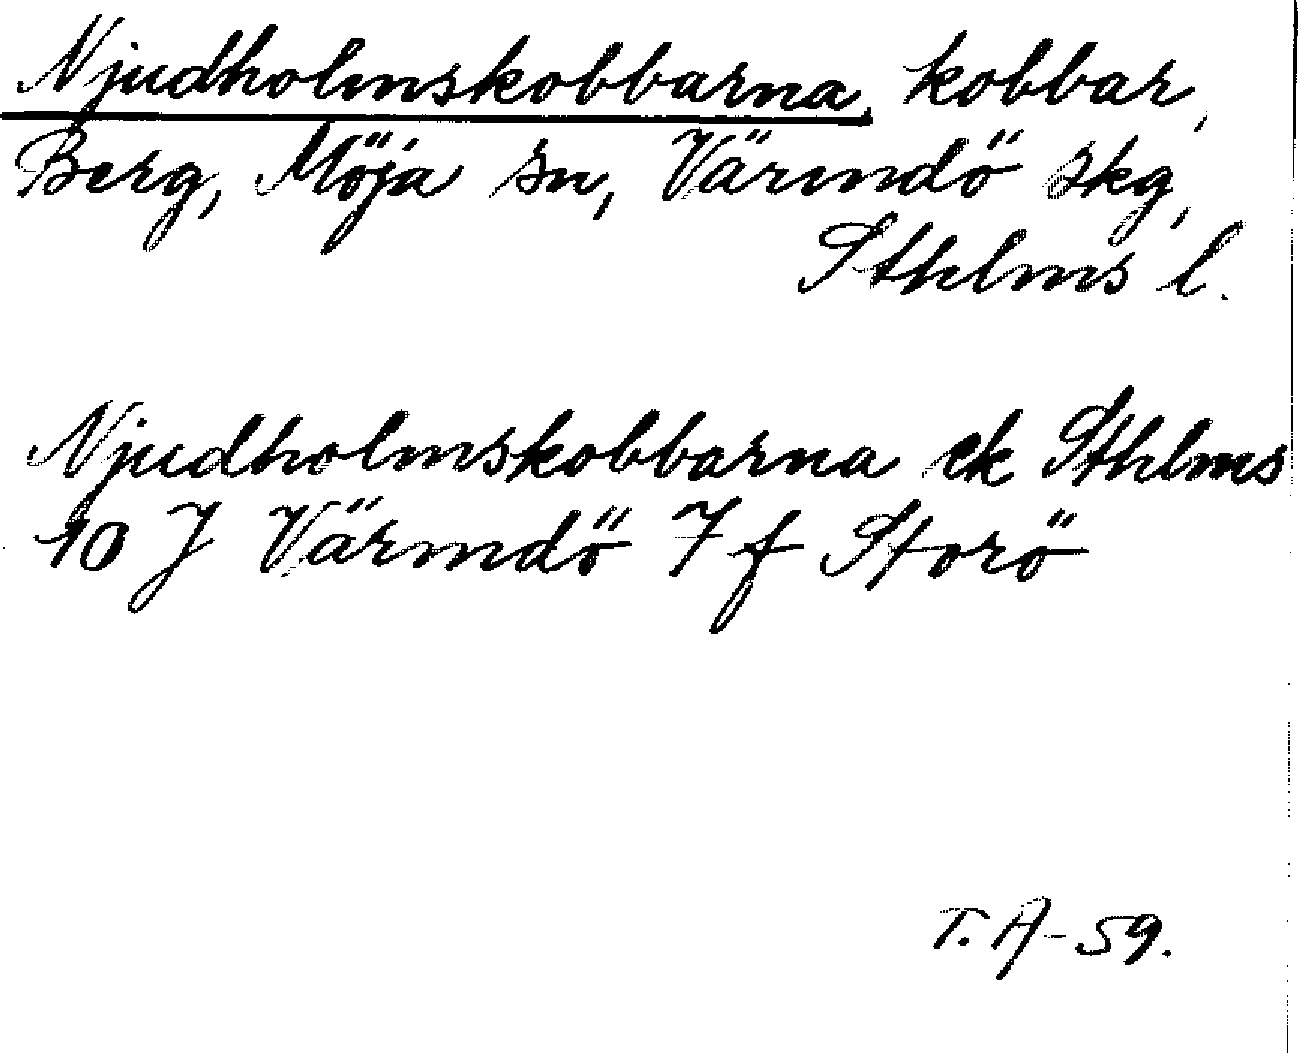 Njudholmskobbarna, kobbar,
Berg, Möja sn, Värmdö skg,
Sthlms l.
Njudholmskobbarna ek Sthlms
10 J Värmdö 7 f Storö
T. A-59.